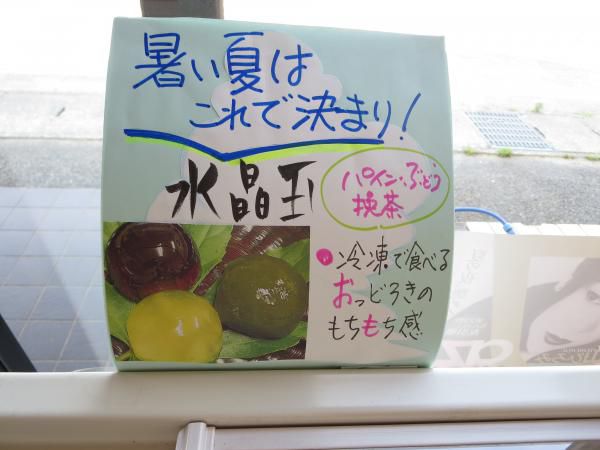 暑い夏は
これで決まり!
水晶玉
パイン・ぶどう
挽茶
●冷凍で食べる
おっどろきの
もちもち感